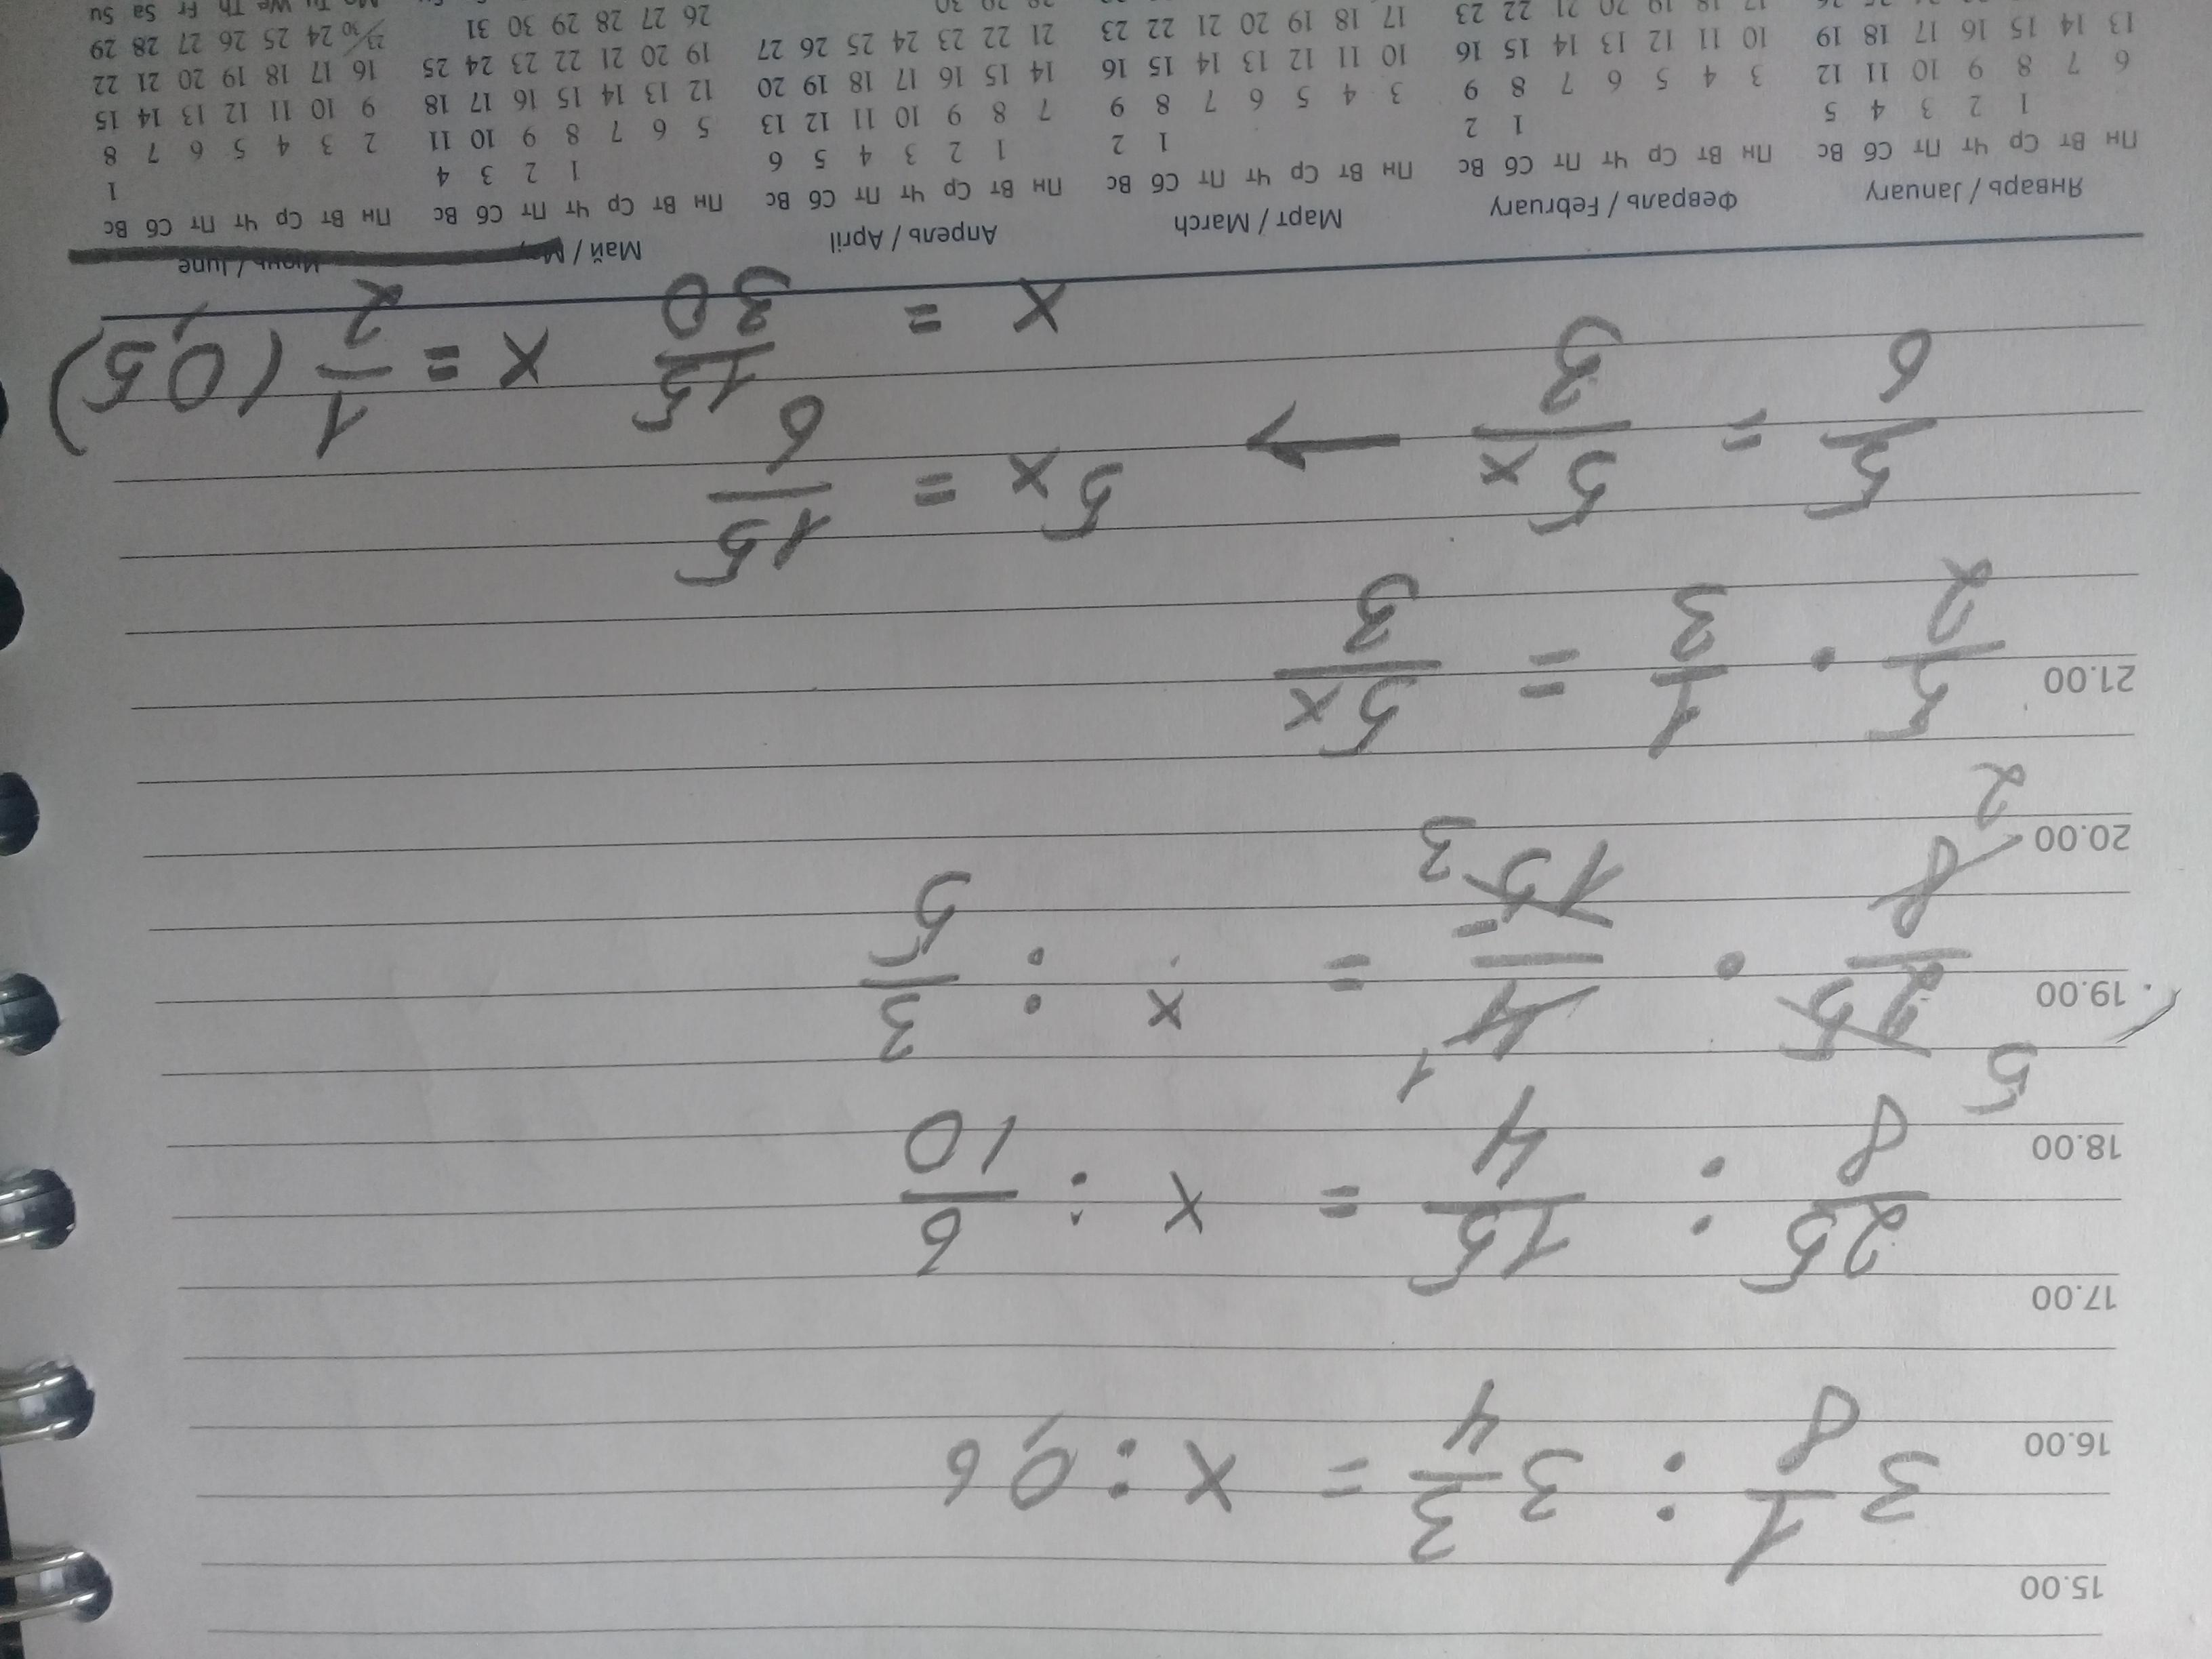 15.00
3 1/8 : 3 3/4 = x : 0,6
16.00
17.00
25/8 : 15/4 = x : 6/10
18.00
5 1
25/8 · 4/15 = x : 3/5
19.00
2 3
20.00
5/2 · 1/3 = 5x/3
21.00
5/6 = 5x/3 → 5x = 15/6
x = 15/30 x = 1/2 (0,5)
Январь / January Февраль / February Март / March Апрель / April Май / Июнь / June
Пн Вт Ср Чт Пт Сб Вс Пн Вт Ср Чт Пт Сб Вс Пн Вт Ср Чт Пт Сб Вс Пн Вт Ср Чт Пт Сб Вс Пн Вт Ср Чт Пт Сб Вс Пн Вт Ср Чт Пт Сб Вс
1 2 3 4 5 1 2 1 2 1 2 3 4 5 6 1 2 3 4 1
6 7 8 9 10 11 12 3 4 5 6 7 8 9 3 4 5 6 7 8 9 7 8 9 10 11 12 13 5 6 7 8 9 10 11 2 3 4 5 6 7 8
13 14 15 16 17 18 19 10 11 12 13 14 15 16 10 11 12 13 14 15 16 14 15 16 17 18 19 20 12 13 14 15 16 17 18 9 10 11 12 13 14 15
17 18 19 20 21 22 23 17 18 19 20 21 22 23 21 22 23 24 25 26 27 19 20 21 22 23 24 25 16 17 18 19 20 21 22
28 29 30 26 27 28 29 30 31 23/30 24 25 26 27 28 29
Mo Tu We Th Fr Sa Su